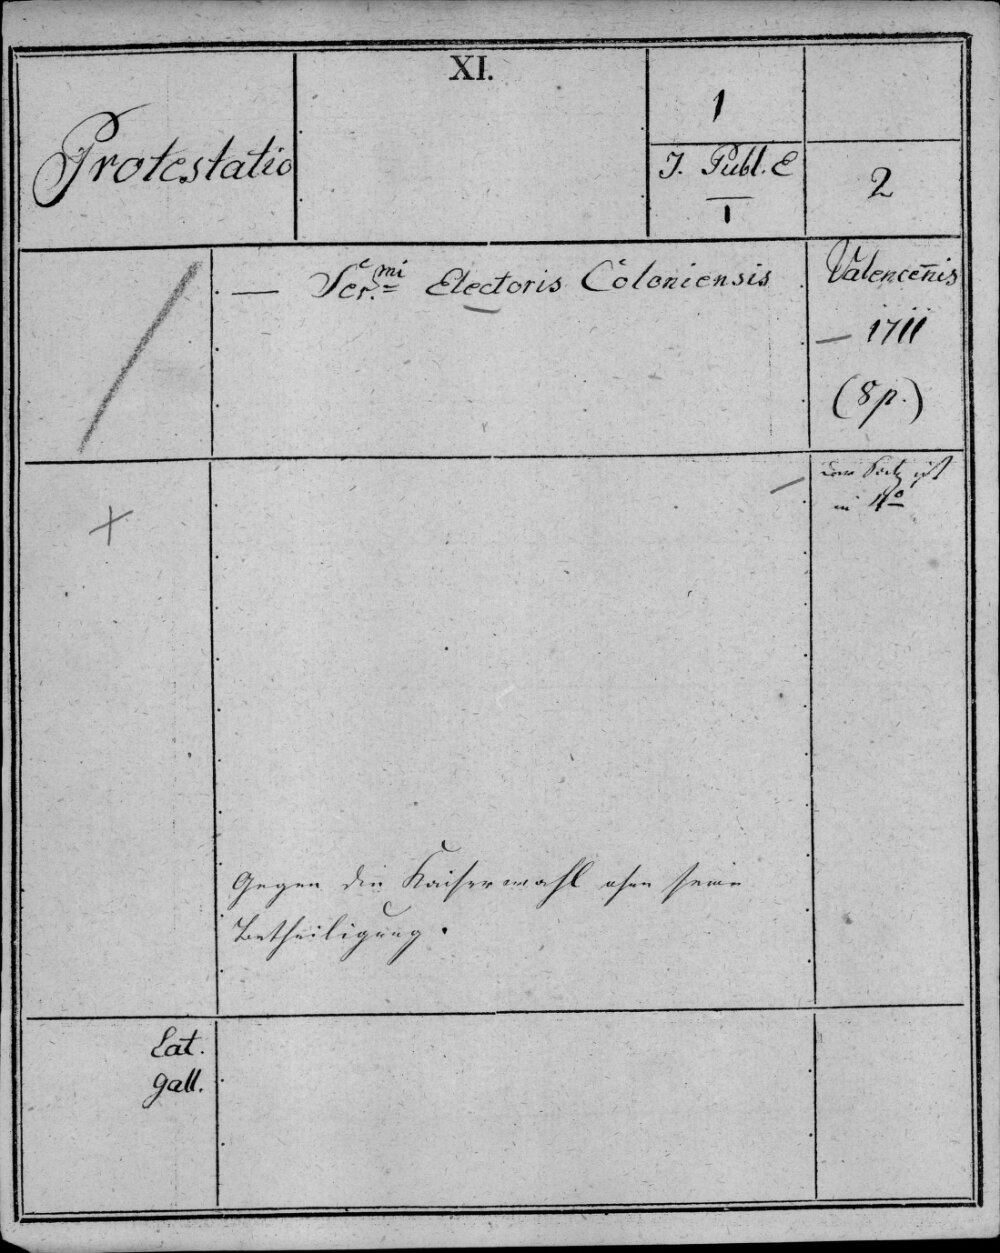 XI.
Protestatio
1
J. Publ. E
I
2
— Ser.mi Electoris Coloniensis
Valencenis
— 1711
(8 p.)
der Satz ist
in 4o
Gegen die Kaiserwahl ohne seine
Betheiligung.
Lat.
gall.